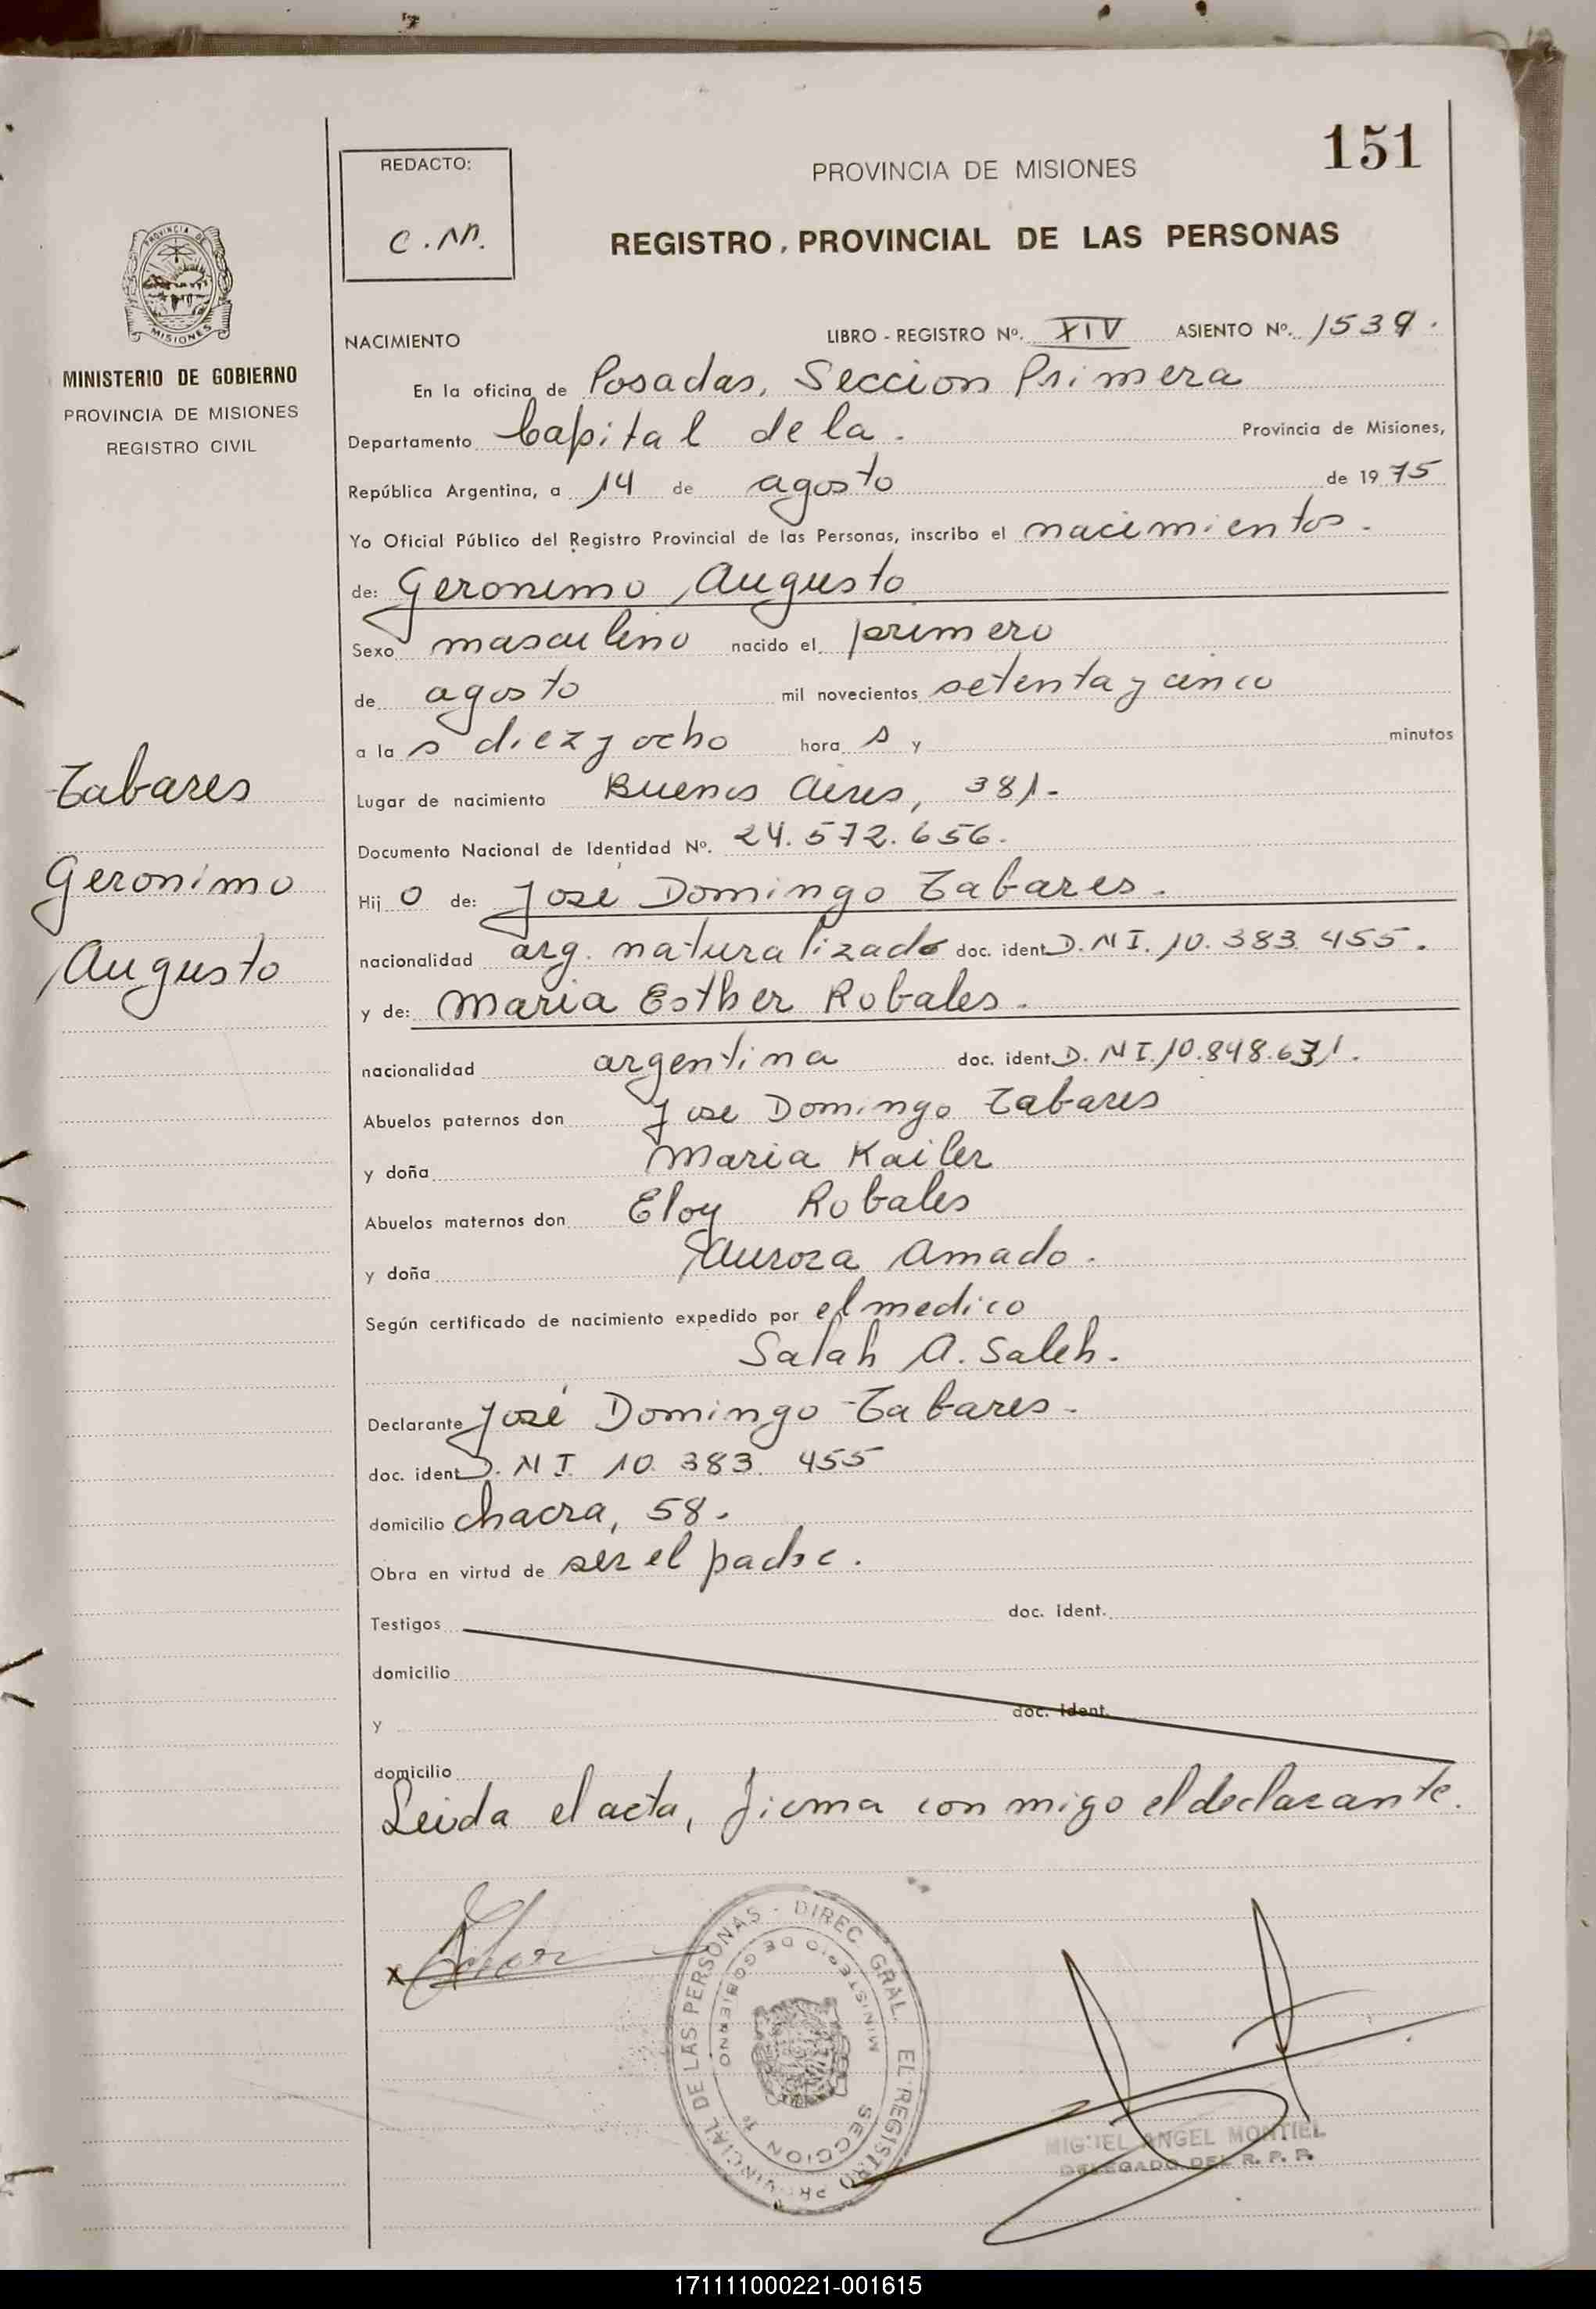 151
REDACTO:
C.M.
PROVINCIA DE MISIONES
REGISTRO PROVINCIAL DE LAS PERSONAS
PROVINCIA DE
MISIONES
MINISTERIO DE GOBIERNO
PROVINCIA DE MISIONES
REGISTRO CIVIL
Tabares
Geronimo
Augusto
NACIMIENTO LIBRO - REGISTRO Nº. XIV ASIENTO Nº. 1539.
En la oficina de Posadas, Seccion Primera
Departamento Capital de la. Provincia de Misiones,
República Argentina, a 14 de agosto de 1975
Yo Oficial Público del Registro Provincial de las Personas, inscribo el nacimientos.
de: Geronimo Augusto
Sexo masculino nacido el primero
de agosto mil novecientos setenta y cinco
a la s diez y ocho hora s y minutos
Lugar de nacimiento Buenos Aires, 381.-
Documento Nacional de Identidad Nº. 24.572.656.
Hij o de: José Domingo Tabares.
nacionalidad arg. naturalizado doc. ident. D.N I. 10.383.455.
y de: Maria Esther Robales.
nacionalidad argentina doc. ident. D.N I. 10.848.631.
Abuelos paternos don Jose Domingo Tabares
y doña Maria Kailer
Abuelos maternos don Eloy Robales
y doña Aurora Amado.
Según certificado de nacimiento expedido por el medico
Salah A. Saleh.
Declarante José Domingo Tabares.
doc. ident. D. N I. 10. 383. 455
domicilio chacra, 58.
Obra en virtud de ser el padre.
Testigos doc. ident.
domicilio
y doc. ident.
domicilio
Leida el acta, firma con migo el declarante.
x
EL REGISTRO PROVINCIAL DE LAS PERSONAS - DIREC. GRAL.
MINISTERIO DE GOBIERNO
SECCION 1º
MIGUEL ANGEL MONTIEL
DELEGADO DEL R. P. P.
171111000221-001615